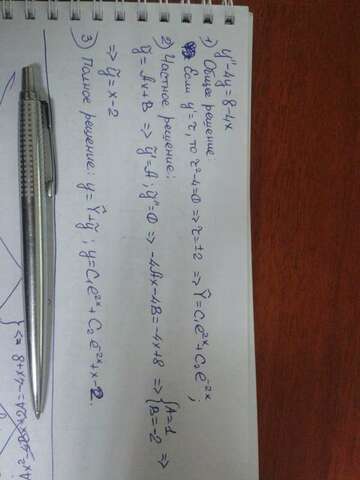 y''-4y=8-4x
1) Общее решение
Если y'=z, то z²-4=0 => z=±2 => Ȳ=C₁e^2x+C₂e^-2x;
2) Частное решение:
ỹ=Ax+B => ỹ'=A; ỹ''=0 => -4Ax-4B=-4x+8 => {A=1 B=-2 =>
=> ỹ=x-2
3) Полное решение: y=Ȳ+ỹ; y=C₁e^2x+C₂e^-2x+x-2.